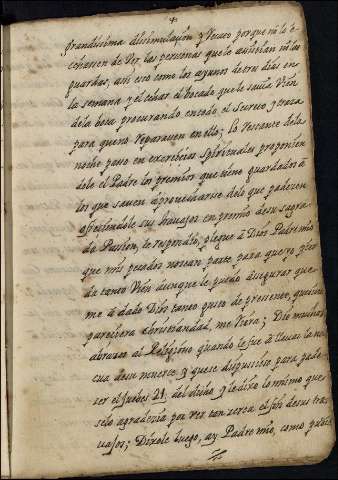 grandissima dissimulaçion y Recato porque no lo e
chassen de Ver, las personas que lo assistian ni las
guardas, assi esto como los ayunos de tres dias en
la semana y el echar el bocado que le savia Vien
dela boca procurando entodo el Secreto, y traza
para queno Reparassen en ello; lo Restante dela
noche passo en exercicios spirituales proponien
dole el Padre los premios que tiene guardados à
los que saven aprovecharse delo que padecen
ofreciendole sus travajos en premio desu sagra
da Passion, le respondio, plegue à Dios Padre mio
que mis pecados nosean parte para que yo pier
da tanto Vien aunque le puedo asegurar que
me à dado Dios tanto gusto de presente, que
pareciera                me Viera; Dio muchos
abrazos al Religioso quando le fue à llevar la nu
eva desu muerte y quese dispusiesse para pade
cer el Juebes 21 del dicho y le dixo lo mismo que
selo agradezia por ver tan cerca el fin desus tra
vajos; Dixole luego, ay Padre mio, como